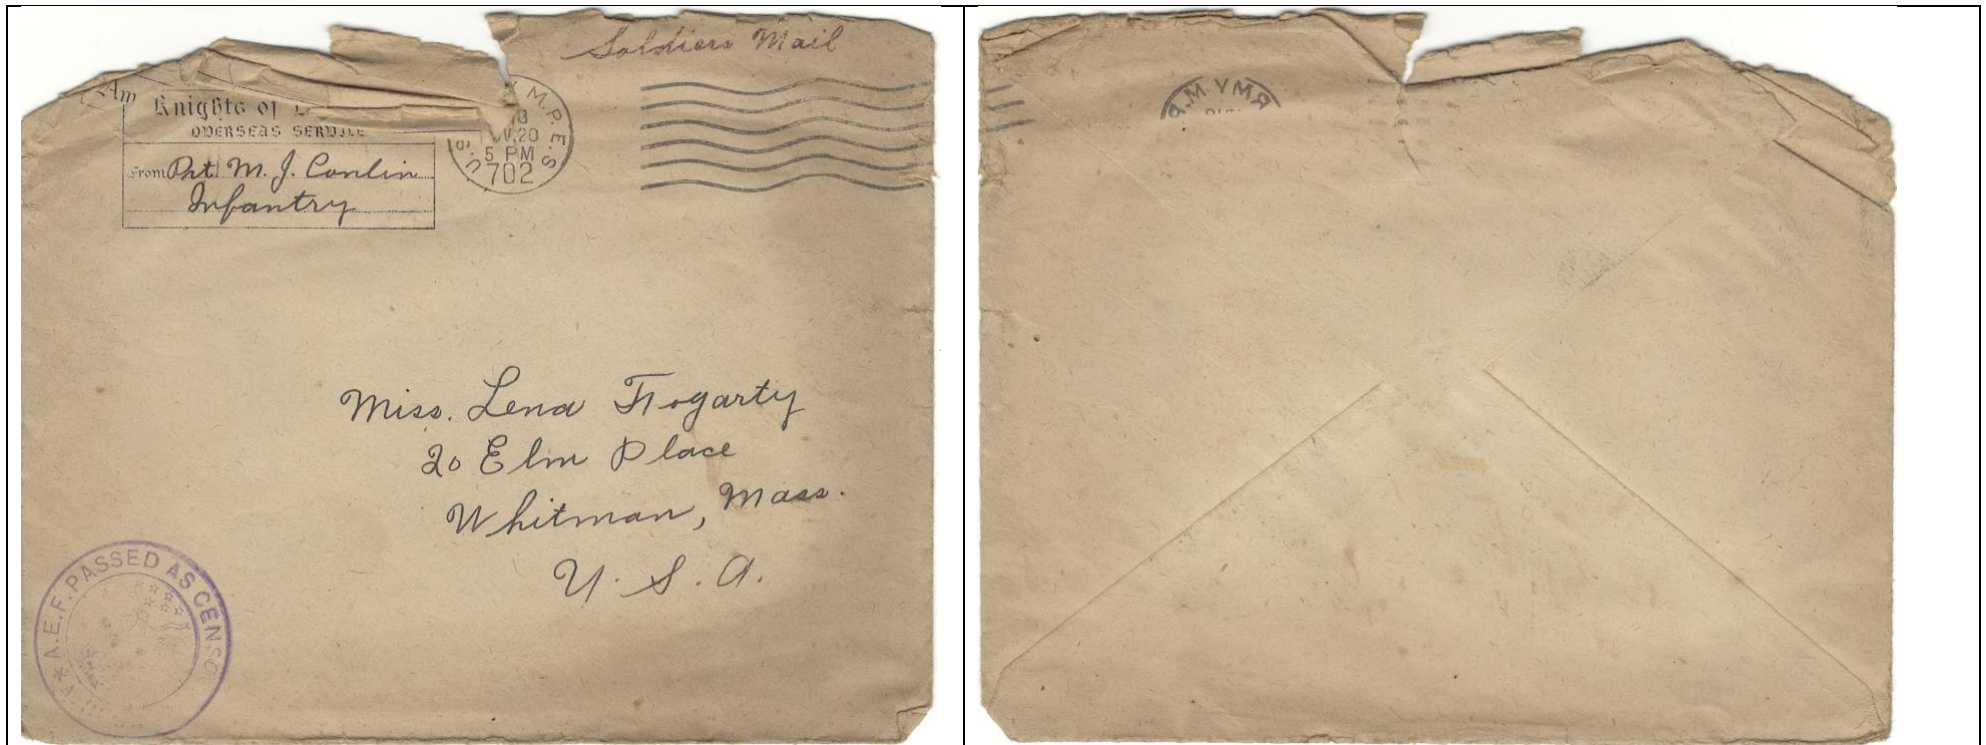 Soldiers Mail
Am
Knights of
OVERSEAS SERVICE
From Pvt. M. J. Conlin
Infantry
M.P.E.S.
5 PM
702
U.S.
Miss. Lena Fogarty
20 Elm Place
Whitman, Mass.
U. S. A.
A.E.F. PASSED AS CENSO